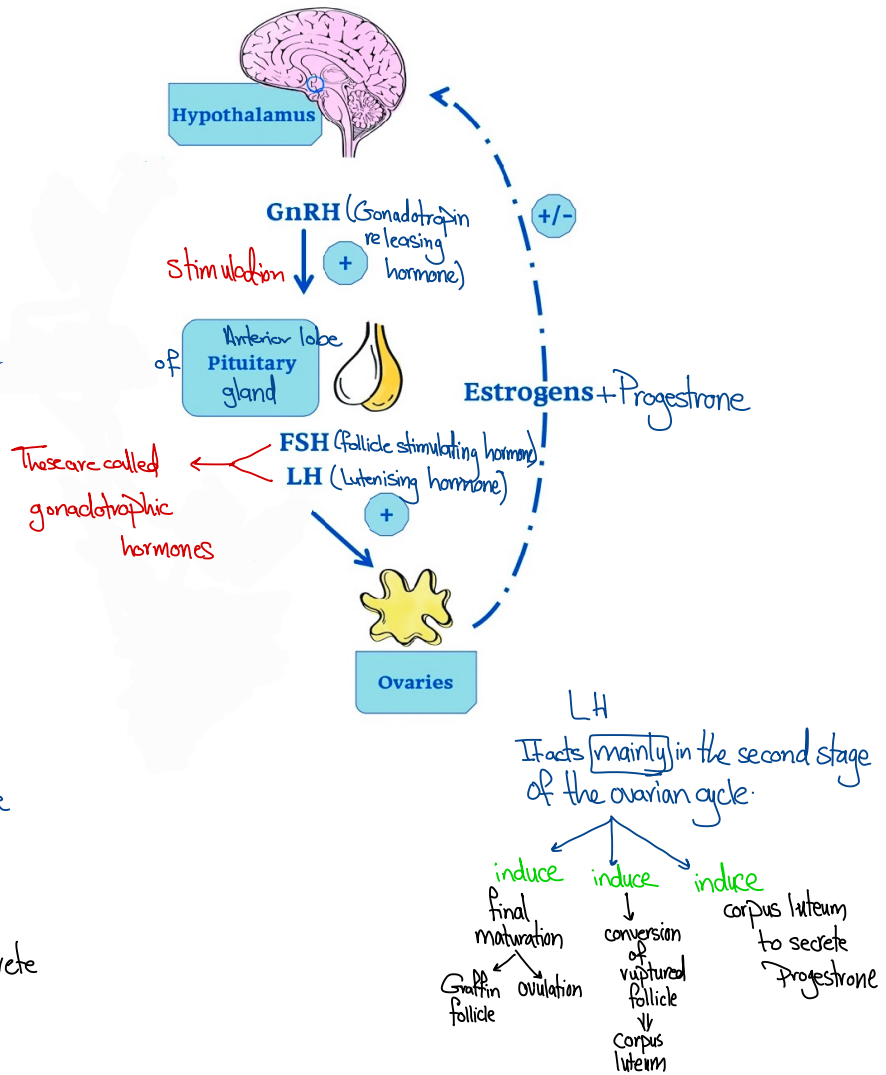 Hypothalamus
GnRH (Gonadotropin
releasing
hormone)
+/-
stimulation
+
Anterior lobe
of Pituitary
gland
Estrogens + Progestrone
FSH (follicle stimulating hormone)
LH (Lutenising hormone)
These are called
gonadotrophic
hormones
+
Ovaries
LH
It acts mainly in the second stage
of the ovarian cycle.
induce
final
maturation
Graffin
follicle
ovulation
induce
conversion
of
ruptured
follicle
corpus
luteum
induce
corpus luteum
to secrete
Progestrone